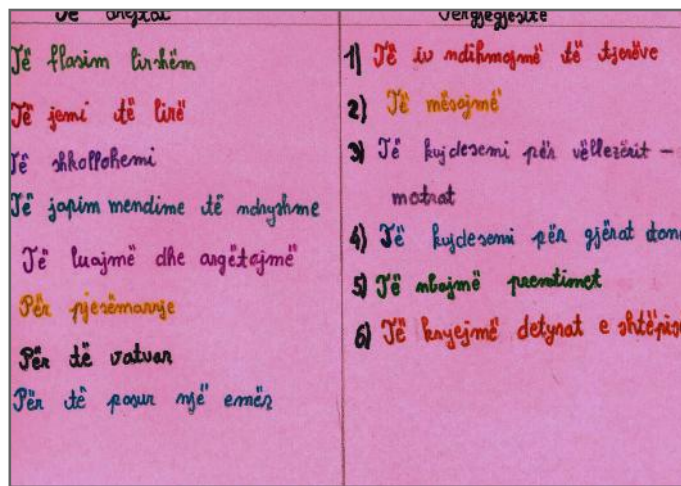 Të drejtat
Të flasim lirshëm
Të jemi të lirë
Të shkollohemi
Të japim mendime të ndryshme
Të luajmë dhe argëtojmë
Për pjesëmarrje
Për të vatuar
Për të pasur një emër
Përgjegjësitë
1) Të iu ndihmojmë të tjerëve
2) Të mësojmë
3) Të kujdesemi për vëllezërit –
motrat
4) Të kujdesemi për gjërat tona
5) Të mbajmë premtimet
6) Të kryejmë detyrat e shtëpisë